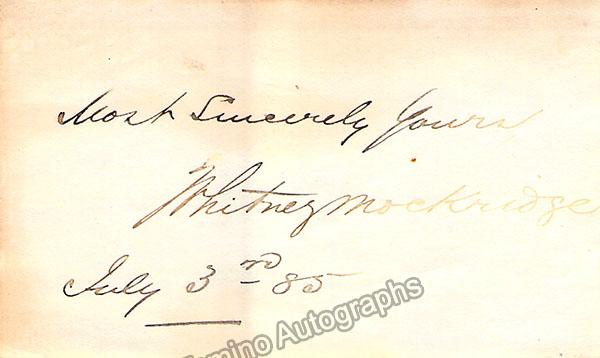 Most Sincerely Yours
Whitney Mockridge
July 3rd 85
Tamino Autographs